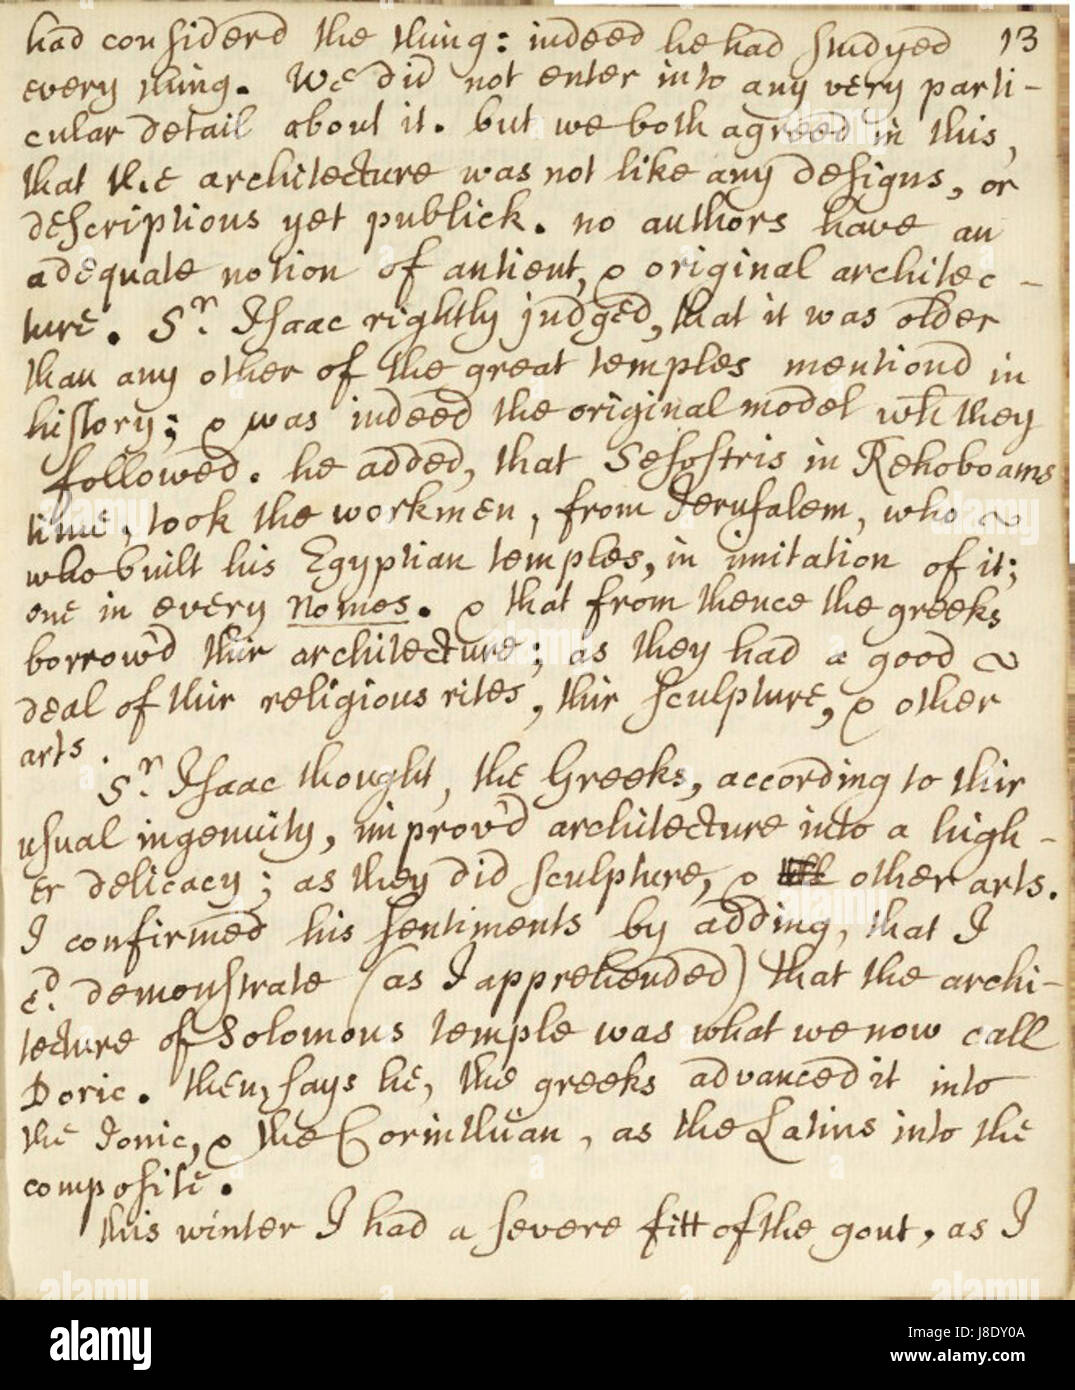 had considerd the thing: indeed he had studyed 13
every thing. We did not enter into any very parti-
cular detail about it. but we both agreed in this,
that the architecture was not like any designs, or
descriptions yet publick. no authors have an
adequate notion of antient, & original architec-
ture. Sr. Isaac rightly judged, that it was older
than any other of the great temples mentiond in
history; & was indeed the original model wh they
followed. he added, that Sesostris in Rehoboams
time, took the workmen, from Jerusalem, who ~
who built his Egyptian temples, in imitation of it;
one in every Nomos. & that from thence the greeks
borrow'd thir architecture; as they had a good ~
deal of thir religious rites, thir sculpture, & other
arts.
Sr. Isaac thought, the Greeks, according to thir
usual ingenuity, improv'd architecture into a high-
er delicacy; as they did sculpture, & other arts.
I confirmed his sentiments by adding, that I
cd. demonstrate (as I apprehended) that the archi-
tecture of Solomons temple was what we now call
Doric. then, says he, the greeks advanced it into
the Ionic, & the Corinthian, as the Latins into the
composite.
this winter I had a severe fitt of the gout, as I
alamy
Image ID: J8DY0A
www.alamy.com